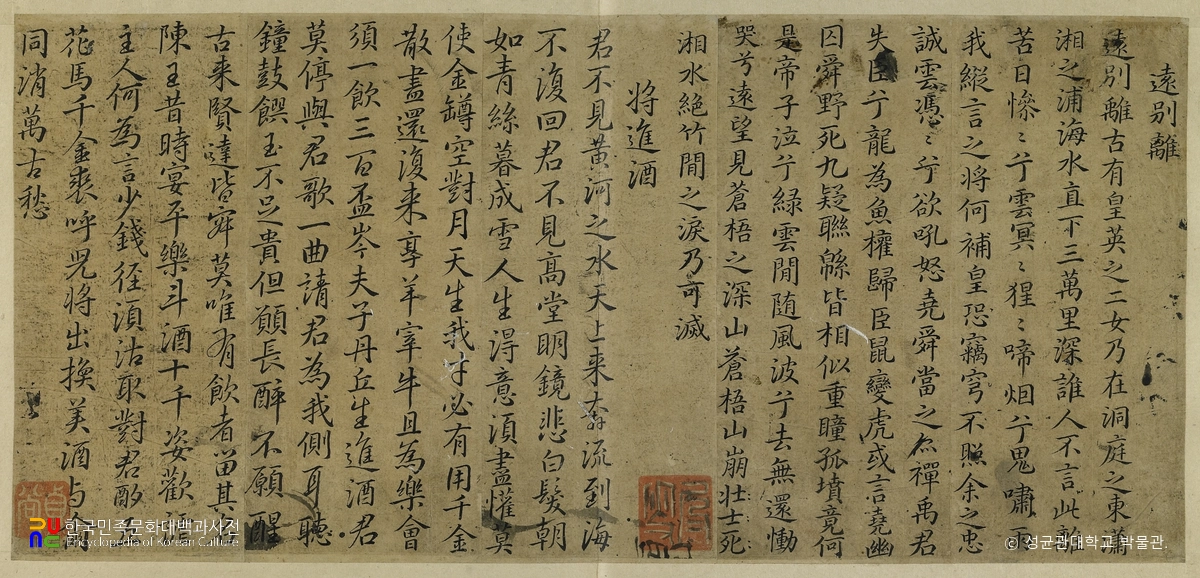 遠別離
遠別離古有皇英之二女乃在洞庭之東瀟
湘之浦海水直下三萬里深誰人不言此離
苦日慘〻兮雲冥〻猩〻啼烟兮鬼嘯雨
我縱言之將何補皇恐竊穹不照余之忠
誠雲憑〻兮欲吼怒堯舜當之亦禪禹君
失臣兮龍為魚權歸臣鼠變虎或言堯幽
囚舜野死九疑聯緜皆相似重瞳孤墳竟何
是帝子泣兮綠雲間随風波兮去無還慟
哭兮遠望見蒼梧之深山蒼梧山崩壮士死
湘水絶竹間之淚乃可滅
將進酒
君不見黃河之水天上来奔流到海
不復回君不見高堂明鏡悲白髮朝
如青絲暮成雪人生得意湏盡懽莫
使金罇空對月天生我才必有用千金
散盡還復来享羊宰牛且為樂會
須一飲三百盃岑夫子丹丘生進酒君
莫停與君歌一曲請君為我側耳聽
鐘鼓饌玉不足貴但願長醉不願醒
古来賢達皆寂莫唯有飲者留其
陳王昔時宴平樂斗酒十千姿歡
主人何為言少錢徑湏沽取對君酌
花馬千金裘呼兒將出換美酒与
同消萬古愁
한국민족문화대백과사전
Encyclopedia of Korean Culture
© 성균관대학교 박물관.